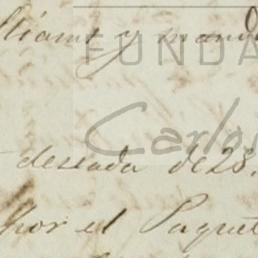 lliams y mand
FUNDA
Carlo
deseada de 28.
por el Paquet